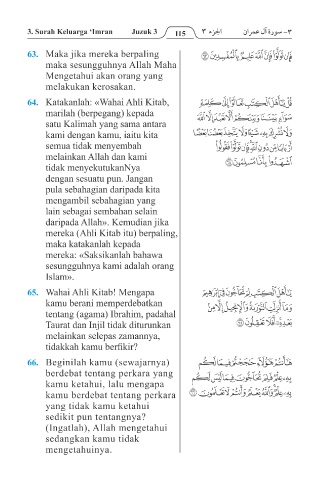 3. Surah Keluarga ‘Imran Juzuk 3 115 الجزء ٣ ٣- سورة آل عمران
63. Maka jika mereka berpaling
maka sesungguhnya Allah Maha
Mengetahui akan orang yang
melakukan kerosakan.
فَإِن تَوَلَّوْا۟ فَإِنَّ ٱللَّهَ عَلِيمٌۢ بِٱلْمُفْسِدِينَ ۝٦٣
64. Katakanlah: «Wahai Ahli Kitab,
marilah (berpegang) kepada
satu Kalimah yang sama antara
kami dengan kamu, iaitu kita
semua tidak menyembah
melainkan Allah dan kami
tidak menyekutukanNya
dengan sesuatu pun. Jangan
pula sebahagian daripada kita
mengambil sebahagian yang
lain sebagai sembahan selain
daripada Allah». Kemudian jika
mereka (Ahli Kitab itu) berpaling,
maka katakanlah kepada
mereka: «Saksikanlah bahawa
sesungguhnya kami adalah orang
Islam».
قُلْ يَٰٓأَهْلَ ٱلْكِتَٰبِ تَعَالَوْا۟ إِلَىٰ كَلِمَةٍ
سَوَآءٍۭ بَيْنَنَا وَبَيْنَكُمْ أَلَّا نَعْبُدَ إِلَّا ٱللَّهَ
وَلَا نُشْرِكَ بِهِۦ شَيْـًٔا وَلَا يَتَّخِذَ بَعْضُنَا بَعْضًا
أَرْبَابًا مِّن دُونِ ٱللَّهِ فَإِن تَوَلَّوْا۟ فَقُولُوا۟
ٱشْهَدُوا۟ بِأَنَّا مُسْلِمُونَ ۝٦٤
65. Wahai Ahli Kitab! Mengapa
kamu berani memperdebatkan
tentang (agama) Ibrahim, padahal
Taurat dan Injil tidak diturunkan
melainkan selepas zamannya,
tidakkah kamu berfikir?
يَٰٓأَهْلَ ٱلْكِتَٰبِ لِمَ تُحَآجُّونَ فِىٓ إِبْرَٰهِيمَ
وَمَآ أُنزِلَتِ ٱلتَّوْرَىٰةُ وَٱلْإِنجِيلُ إِلَّا مِنۢ
بَعْدِهِۦٓ أَفَلَا تَعْقِلُونَ ۝٦٥
66. Beginilah kamu (sewajarnya)
berdebat tentang perkara yang
kamu ketahui, lalu mengapa
kamu berdebat tentang perkara
yang tidak kamu ketahui
sedikit pun tentangnya?
(Ingatlah), Allah mengetahui
sedangkan kamu tidak
mengetahuinya.
هَٰٓأَنتُمْ هَٰٓؤُلَآءِ حَٰجَجْتُمْ فِيمَا لَكُم
بِهِۦ عِلْمٌ فَلِمَ تُحَآجُّونَ فِيمَا لَيْسَ لَكُم
بِهِۦ عِلْمٌ وَٱللَّهُ يَعْلَمُ وَأَنتُمْ لَا تَعْلَمُونَ ۝٦٦